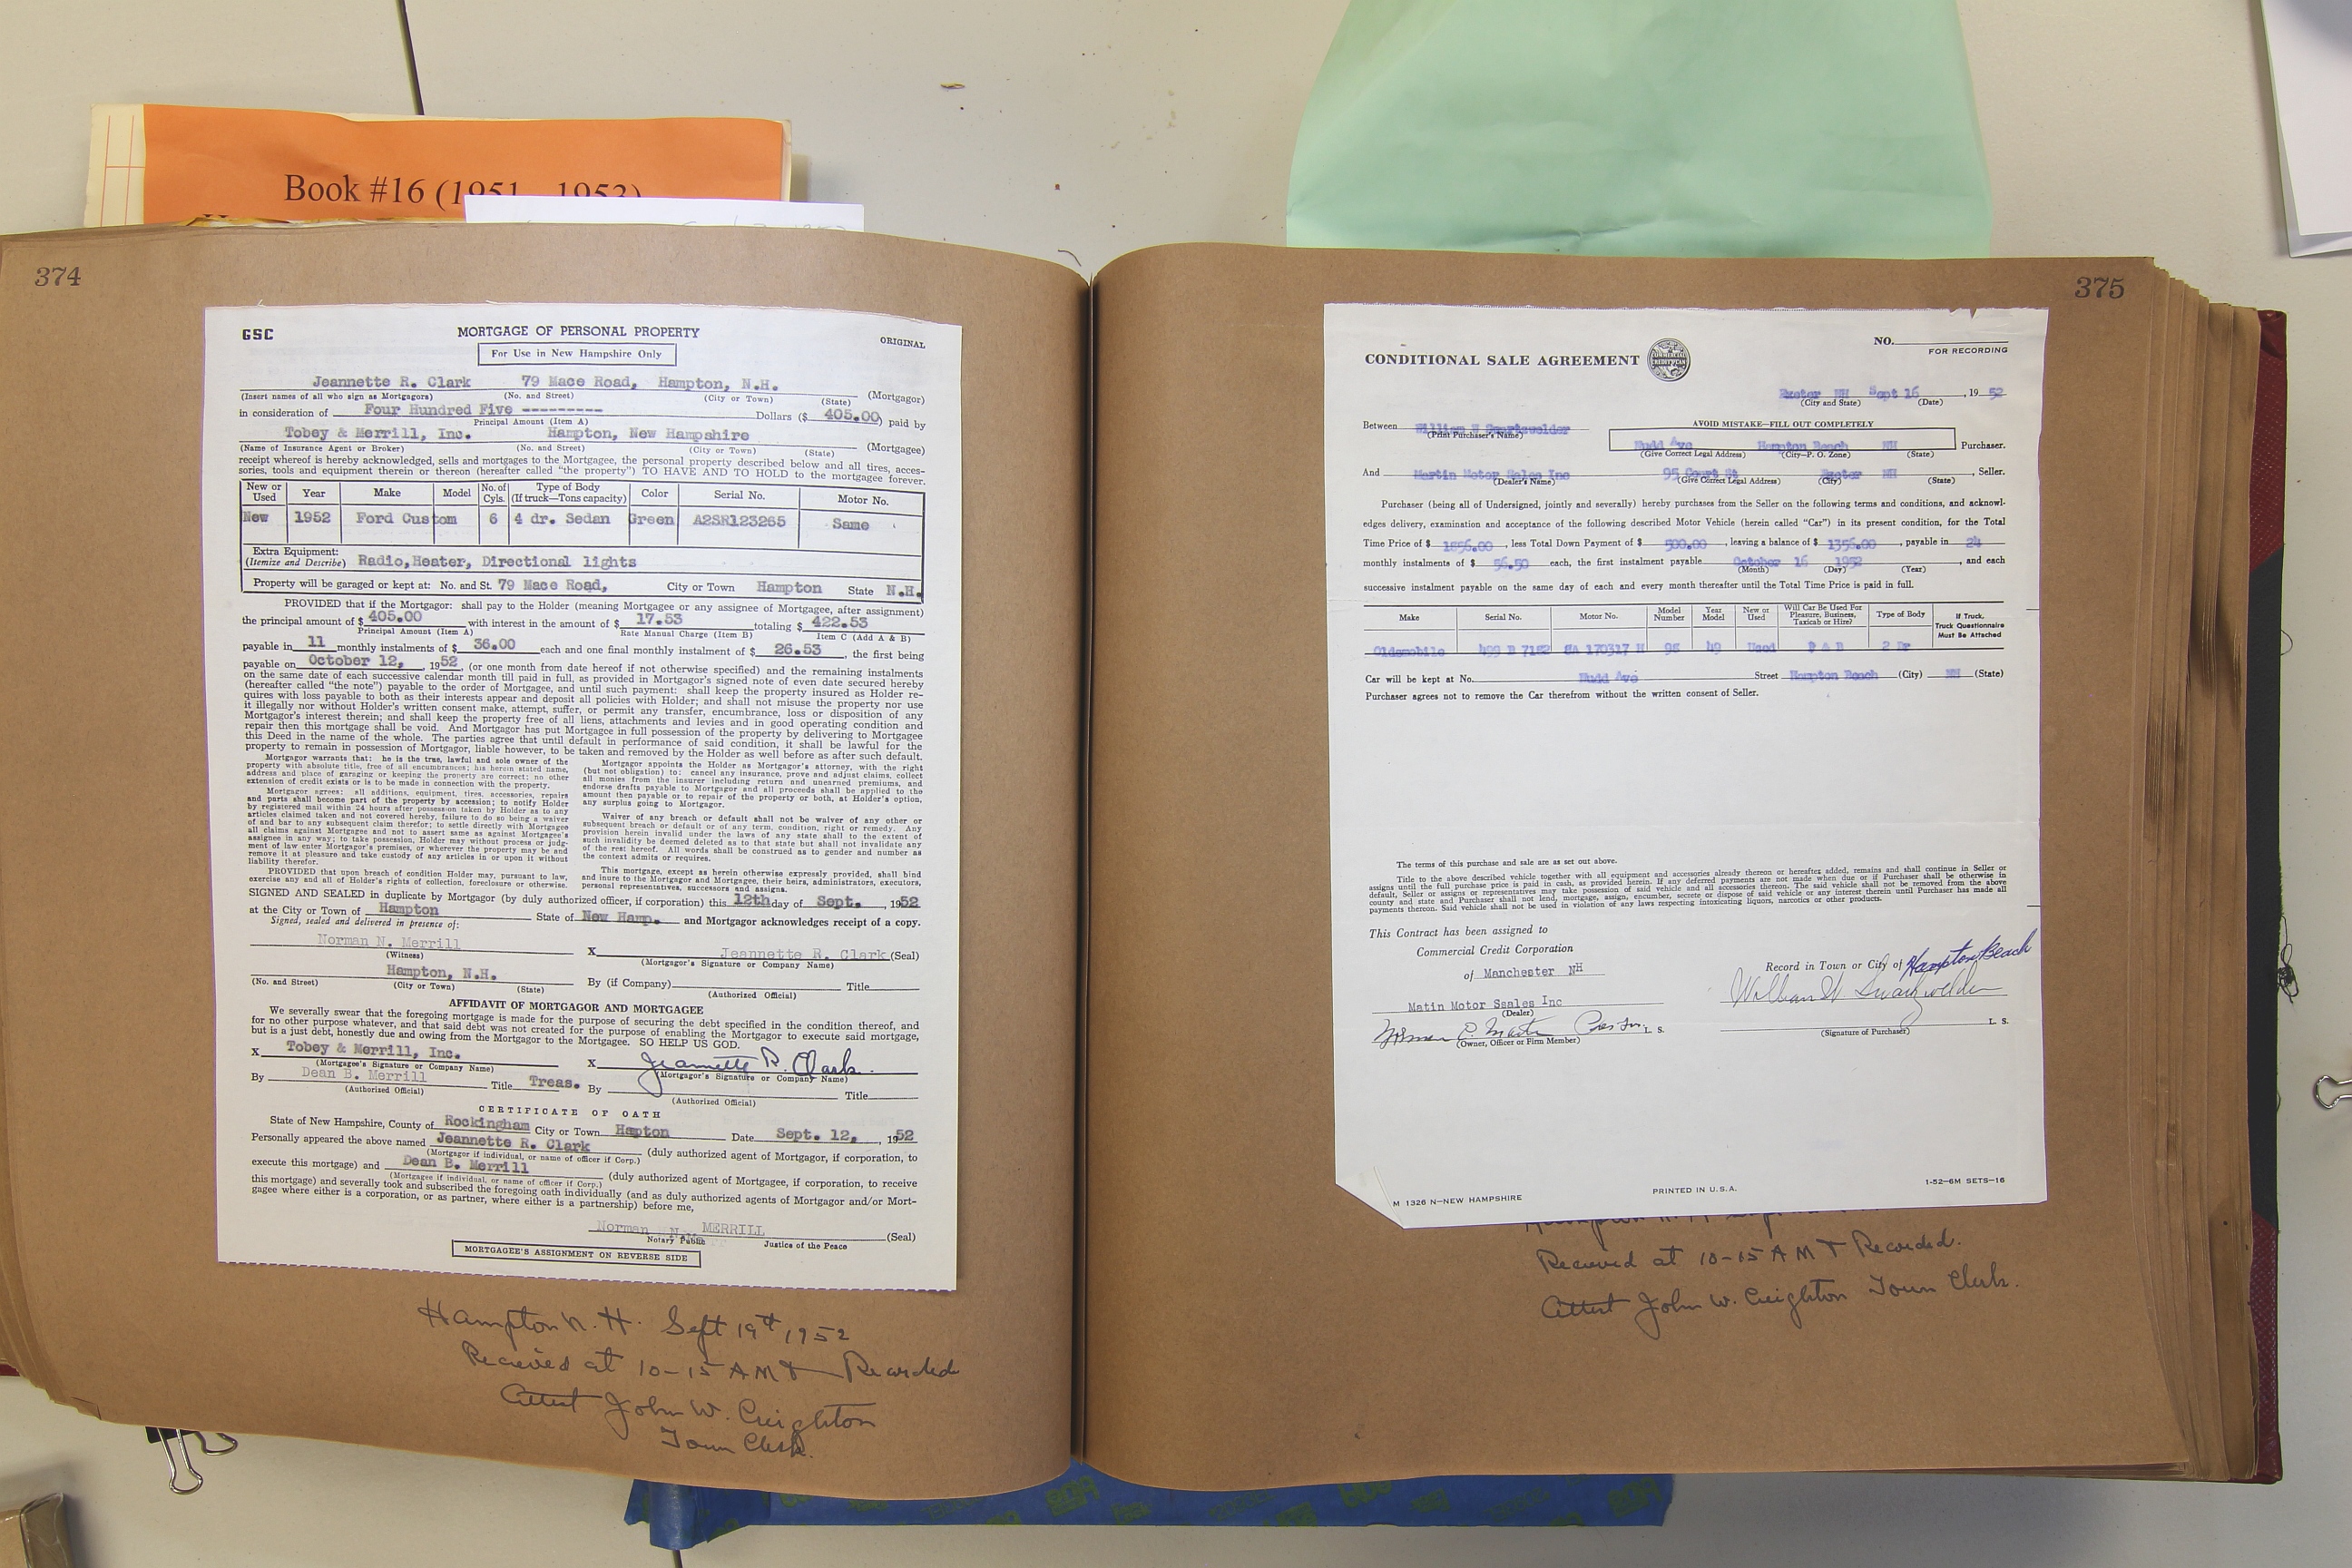 Book #16 (1951 - 1953)
374
GSC
MORTGAGE OF PERSONAL PROPERTY
ORIGINAL
For Use in New Hampshire Only
Jeannette R. Clark 79 Mace Road, Hampton, N.H. (Mortgagor)
(Insert names of all who sign as Mortgagors) (No. and Street) (City or Town) (State)
in consideration of Four Hundred Five --------- Dollars ($ 405.00) paid by
Principal Amount (Item A)
Tobey & Merrill, Inc. Hampton, New Hampshire (Mortgagee)
(Name of Insurance Agent or Broker) (No. and Street) (City or Town) (State)
receipt whereof is hereby acknowledged, sells and mortgages to the Mortgagee, the personal property described below and all tires, acces-
sories, tools and equipment therein or thereon (hereafter called "the property") TO HAVE AND TO HOLD to the mortgagee forever.
New or Used Year Make Model No. of Cyls. Type of Body (If truck—Tons capacity) Color Serial No. Motor No.
New 1952 Ford Custom 6 4 dr. Sedan Green A2SR123265 Same
Extra Equipment:
(Itemize and Describe) Radio,Heater, Directional lights
Property will be garaged or kept at: No. and St. 79 Mace Road, City or Town Hampton State N.H.
PROVIDED that if the Mortgagor: shall pay to the Holder (meaning Mortgagee or any assignee of Mortgage, after assignment)
the principal amount of $ 405.00 with interest in the amount of $ 17.53 totaling $ 422.53
Principal Amount (Item A) Rate Manual Charge (Item B) Item C (Add A & B)
payable in 11 monthly instalments of $ 36.00 each and one final monthly instalment of $ 26.53, the first being
payable on October 12, 1952, (or one month from date hereof if not otherwise specified) and the remaining instalments
on the same date of each successive calendar month till paid in full, as provided in Mortgagor's signed note of even date secured hereby
(hereafter called "the note") payable to the order of Mortgagee, and until such payment: shall keep the property insured as Holder re-
quires with loss payable to both as their interests appear and deposit all policies with Holder; and shall not misuse the property nor use
it illegally nor without Holder's written consent make, attempt, suffer, or permit any transfer, encumbrance, loss or disposition of any
Mortgagor's interest therein; and shall keep the property free of all liens, attachments and levies and in good operating condition and
repair then this mortgage shall be void. And Mortgagor has put Mortgagee in full possession of the property by delivering to Mortgagee
this Deed in the name of the whole. The parties agree that until default in performance of said condition, it shall be lawful for the
property to remain in possession of Mortgagor, liable however, to be taken and removed by the Holder as well before as after such default.
Mortgagor warrants that: he is the true, lawful and sole owner of the
property with absolute title, free of all encumbrances; his herein stated name,
address and place of garaging or keeping the property are correct; no other
extension of credit exists or is to be made in connection with the property.
Mortgagor agrees: all additions, equipment, tires, accessories, repairs
and parts shall become part of the property by accession; to notify Holder
by registered mail within 24 hours after possession taken by Holder as to any
articles claimed taken and not covered hereby, failure to do so being a waiver
of and bar to any subsequent claim therefor; to settle directly with Mortgagee
all claims against Mortgagee and not to assert same as against Mortgagee's
assignee in any way; to take possession, Holder may without process or judg-
ment of law enter Mortgagor's premises, or wherever the property may be and
remove it at pleasure and take custody of any articles in or upon it without
liability therefor.
PROVIDED that upon breach of condition Holder may, pursuant to law,
exercise any and all of Holder's rights of collection, foreclosure or otherwise.
Mortgagor appoints the Holder as Mortgagor's attorney, with the right
(but not obligation) to: cancel any insurance, prove and adjust claims, collect
all monies from the insurer including return and unearned premiums, and
endorse drafts payable to Mortgagor and all proceeds shall be applied to the
amount then payable or to repair of the property or both, at Holder's option,
any surplus going to Mortgagor.
Waiver of any breach or default shall not be waiver of any other or
subsequent breach or default or of any term, condition, right or remedy. Any
provision herein invalid under the laws of any state shall to the extent of
such invalidity be deemed deleted as to that state but shall not invalidate any
of the rest hereof. All words shall be construed as to gender and number as
the context admits or requires.
This mortgage, except as herein otherwise expressly provided, shall bind
and inure to the Mortgagor and Mortgagee, their heirs, administrators, executors,
personal representatives, successors and assigns.
SIGNED AND SEALED in duplicate by Mortgagor (by duly authorized officer, if corporation) this 12th day of Sept. , 1952
at the City or Town of Hampton State of New Hamp. and Mortgagor acknowledges receipt of a copy.
Signed, sealed and delivered in presence of:
Norman N. Merrill X Jeannette R. Clark (Seal)
(Witness) (Mortgagor's Signature or Company Name)
Hampton, N.H. By (if Company) Title
(No. and Street) (City or Town) (State) (Authorized Official)
AFFIDAVIT OF MORTGAGOR AND MORTGAGEE
We severally swear that the foregoing mortgage is made for the purpose of securing the debt specified in the condition thereof, and
for no other purpose whatever, and that said debt was not created for the purpose of enabling the Mortgagor to execute said mortgage,
but is a just debt, honestly due and owing from the Mortgagor to the Mortgagee. SO HELP US GOD.
X Tobey & Merrill, Inc. X Jeannette R. Clark
(Mortgagee's Signature or Company Name) (Mortgagor's Signature or Company Name)
By Dean B. Merrill Title Treas. By Title
(Authorized Official) (Authorized Official)
CERTIFICATE OF OATH
State of New Hampshire, County of Rockingham City or Town Hampton Date Sept. 12, , 1952
Personally appeared the above named Jeannette R. Clark (duly authorized agent of Mortgagor, if corporation, to
(Mortgagor if individual, or name of officer if Corp.)
execute this mortgage) and Dean B. Merrill (duly authorized agent of Mortgagee, if corporation, to receive
(Mortgagee if individual, or name of officer if Corp.)
this mortgage) and severally took and subscribed the foregoing oath individually (and as duly authorized agents of Mortgagor and/or Mort-
gagee where either is a corporation, or as partner, where either is a partnership) before me,
Norman N. MERRILL (Seal)
Notary Public Justice of the Peace
MORTGAGEE'S ASSIGNMENT ON REVERSE SIDE
Hampton N. H. Sept 19th, 1952
Recieved at 10-15 AM & Recorded
Attest John W. Creighton
Town Clerk.
375
CONDITIONAL SALE AGREEMENT
NO.
FOR RECORDING
Exeter NH Sept 16 , 19 52
(City and State) (Date)
Between William W Swartswelder
(Print Purchaser's Name)
AVOID MISTAKE—FILL OUT COMPLETELY
Rudd Ave Hampton Beach NH Purchaser.
(Give Correct Legal Address) (City—P. O. Zone) (State)
And Martin Motor Sales Inc 95 Court St Exeter NH , Seller.
(Dealer's Name) (Give Correct Legal Address) (City) (State)
Purchaser (being all of Undersigned, jointly and severally) hereby purchases from the Seller on the following terms and conditions, and acknowl-
edges delivery, examination and acceptance of the following described Motor Vehicle (herein called "Car") in its present condition, for the Total
Time Price of $ 1856.00 , less Total Down Payment of $ 500.00 , leaving a balance of $ 1356.00 , payable in 24
monthly instalments of $ 56.50 each, the first instalment payable October 16 1952 , and each
(Month) (Day) (Year)
successive instalment payable on the same day of each and every month thereafter until the Total Time Price is paid in full.
Make Serial No. Motor No. Model Number Year Model New or Used Will Car Be Used For Pleasure, Business, Taxicab or Hire? Type of Body If Truck, Truck Questionnaire Must Be Attached
Oldsmobile 499 B 7182 8A 170317 H 98 49 Used P & B 2 Dr
Car will be kept at No. Rudd Ave Street Hampton Beach (City) NH (State)
Purchaser agrees not to remove the Car therefrom without the written consent of Seller.
The terms of this purchase and sale are as set out above.
Title to the above described vehicle together with all equipment and accessories already thereon or hereafter added, remains and shall continue in Seller or
assigns until the full purchase price is paid in cash, as provided herein. If any deferred payments are not made when due or if Purchaser shall be otherwise in
default, Seller or assigns or representatives may take possession of said vehicle and all accessories thereon. The said vehicle shall not be removed from the above
county and state and Purchaser shall not lend, mortgage, assign, encumber, secrete or dispose of said vehicle or any interest therein until Purchaser has made all
payments thereon. Said vehicle shall not be used in violation of any laws respecting intoxicating liquors, narcotics or other products.
This Contract has been assigned to
Commercial Credit Corporation
of Manchester NH
Record in Town or City of Hampton Beach
Matin Motor Ssales Inc William W Swartzwelder
(Dealer) L. S.
Norman E. Martin Pres L. S. (Signature of Purchaser)
(Owner, Officer or Firm Member)
M 1326 N—NEW HAMPSHIRE PRINTED IN U.S.A. 1-52-6M SETS-16
Recieved at 10-15 AM & Recorded.
Attest John W. Creighton Town Clerk.